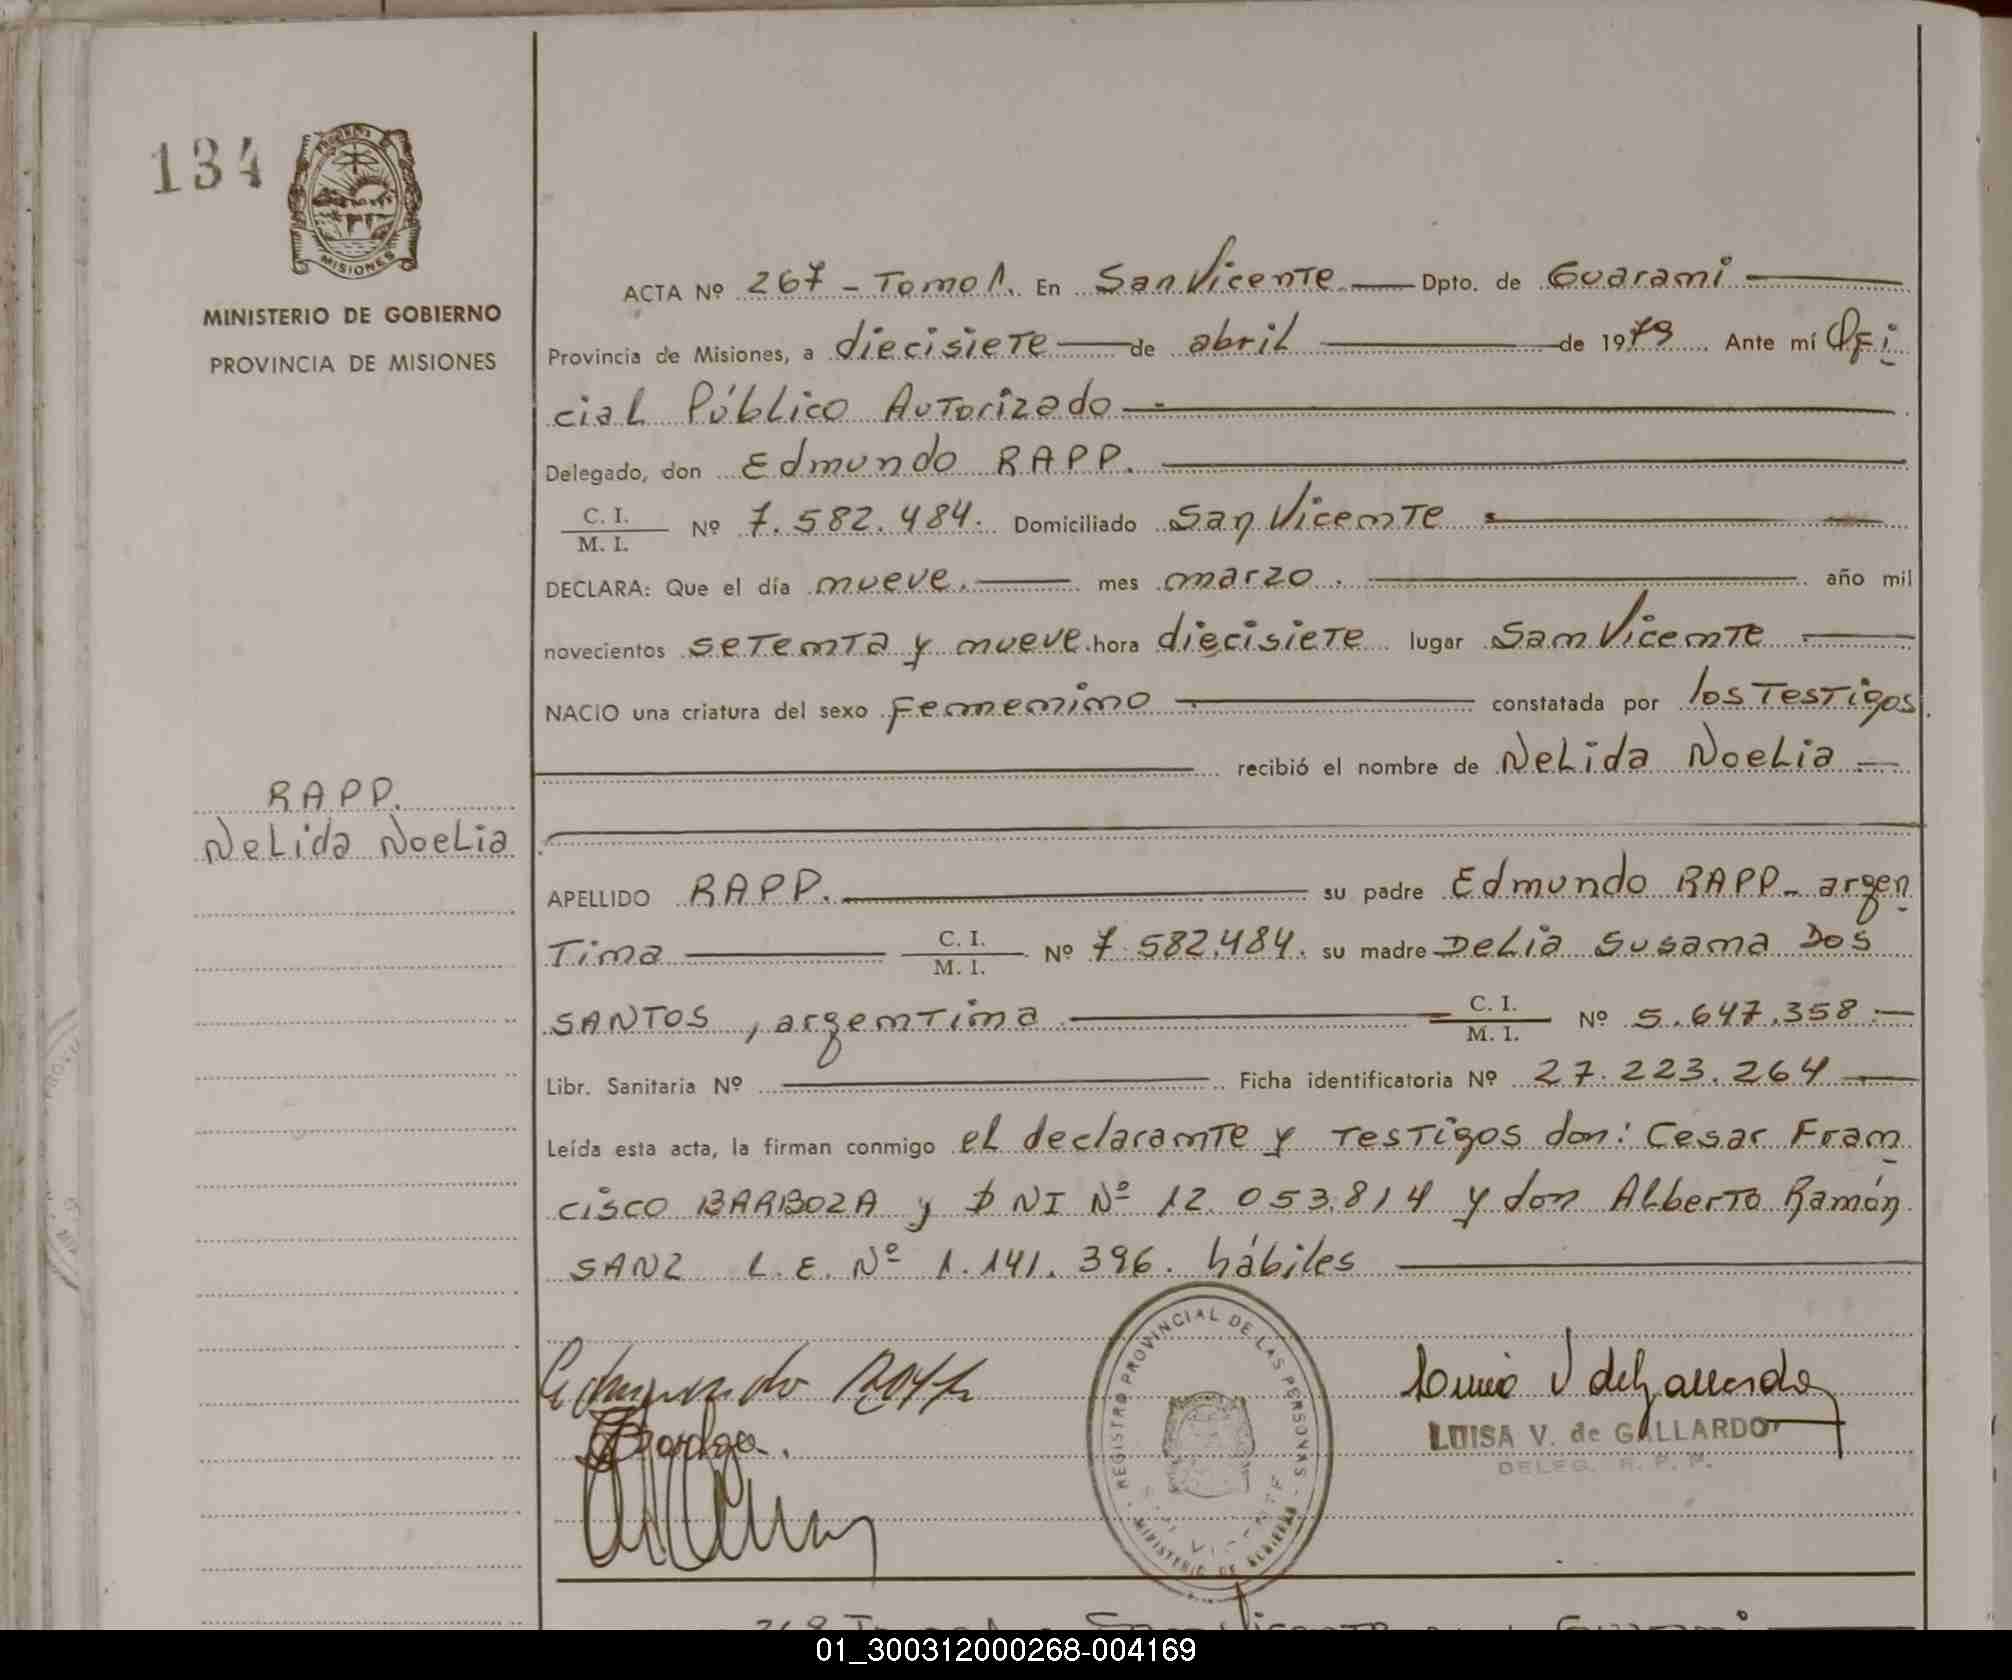 134
PROVINCIA
MISIONES
MINISTERIO DE GOBIERNO
PROVINCIA DE MISIONES
RAPP.
Nelida Noelia
ACTA Nº 267 - Tomo 1. En San Vicente Dpto. de Guarami
Provincia de Misiones, a diecisiete de abril de 1979 Ante mí Ofi
cial Público Autorizado
Delegado, don Edmundo RAPP.
C. I.
M. I. Nº 7.582.484. Domiciliado San Vicemte
DECLARA: Que el día mueve. mes marzo. año mil
novecientos setemta y mueve. hora diecisiete lugar Sam Vicemte
NACIO una criatura del sexo Fememimo constatada por los Testigos.
recibió el nombre de Nelida Noelia
APELLIDO RAPP. su padre Edmundo RAPP - argen
Tima C. I. M. I. Nº 7.582.484. su madre Delia Susama Dos
SANTOS, argemtima C. I. M. I. Nº 5.647.358
Libr. Sanitaria Nº Ficha identificatoria Nº 27.223.264
Leída esta acta, la firman conmigo el declaramte y Testigos don: Cesar Fram
cisco BARBOZA y DNI Nº 12.053.814 y don Alberto Ramón
SANZ L.E. Nº 1.141.396. hábiles
Edmundo Rapp
REGISTRO PROVINCIAL DE LAS PERSONAS
MINISTERIO DE GOBIERNO
LUISA V. de GALLARDO
DELEG. R. P. P.
01_300312000268-004169